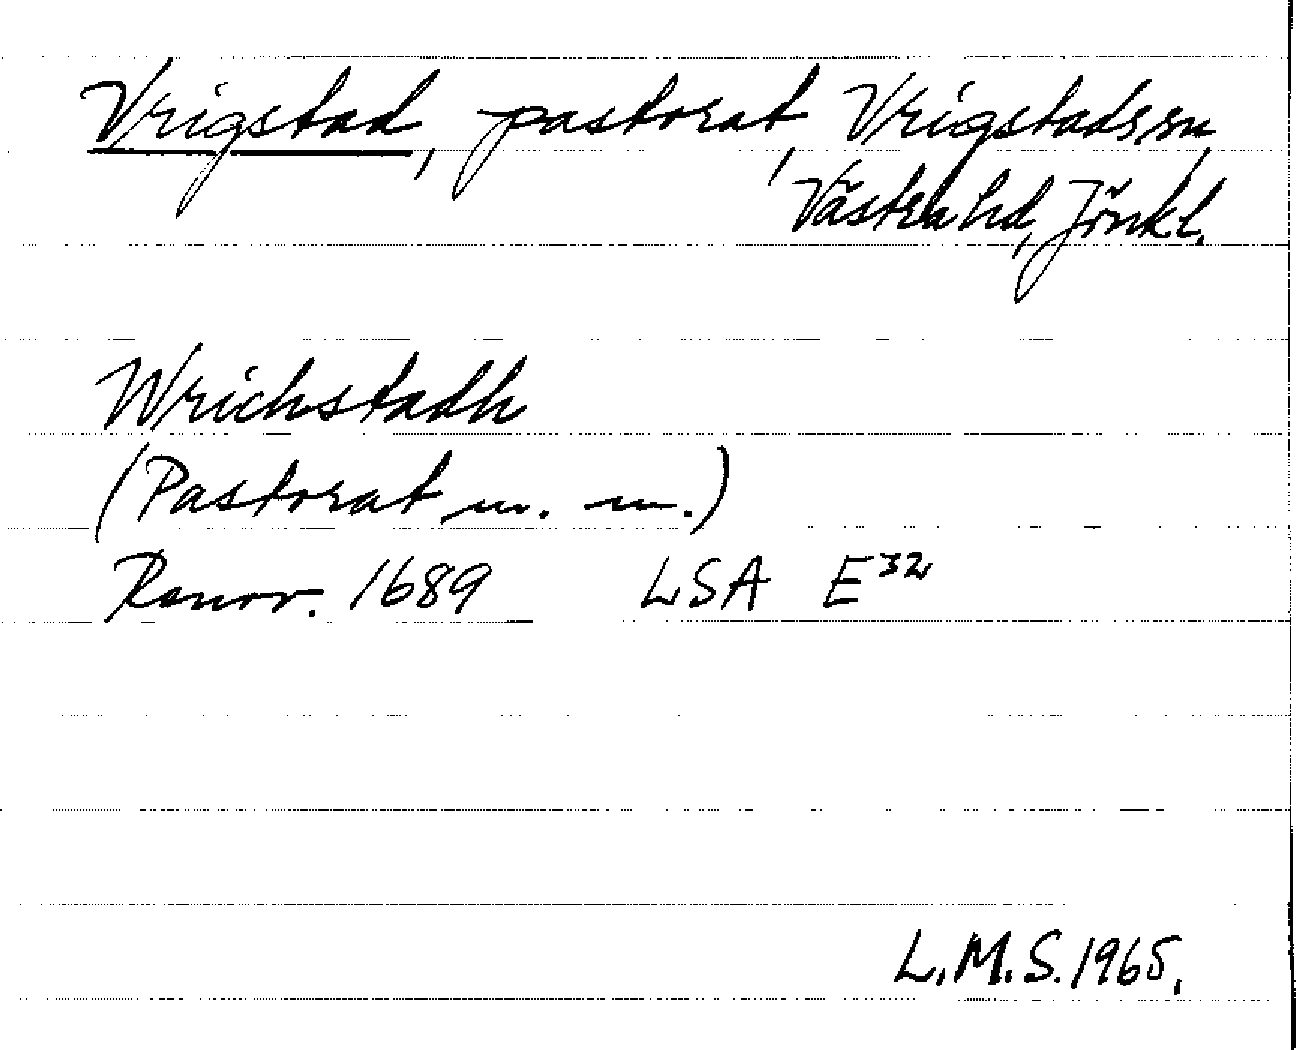 Vrigstad, pastorat, Vrigstads sn,
Västra hd, Jönk l.
Wrichstadh
(Pastorat m. m.)
Ranov. 1689 LSA E³²
L.M.S. 1965.